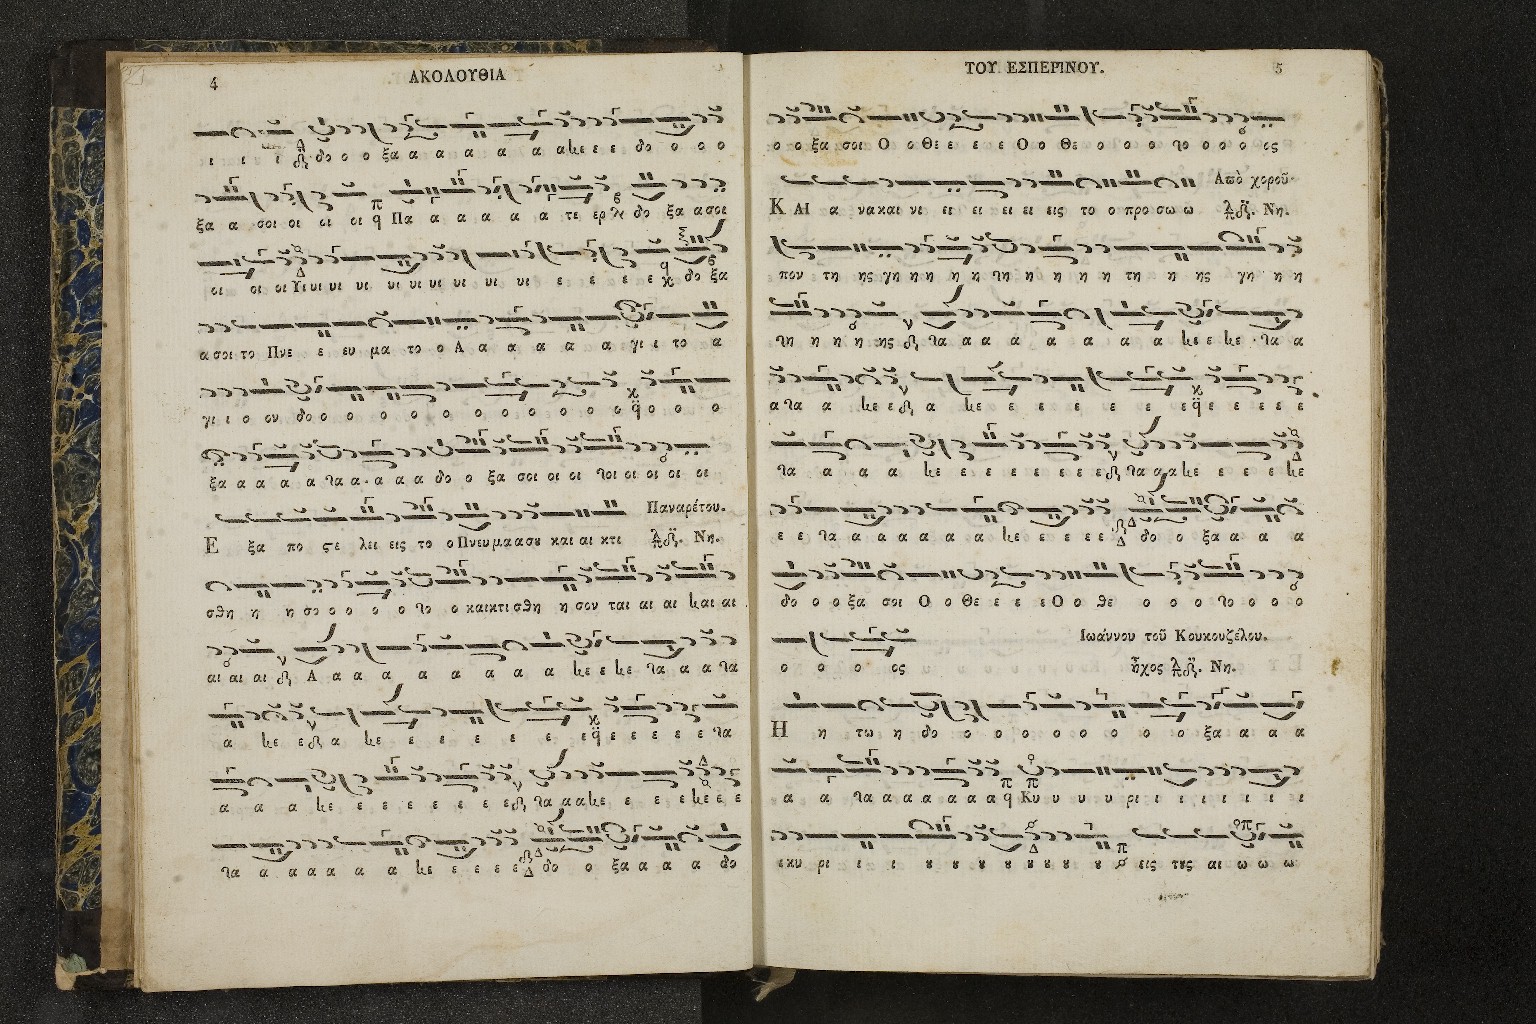 4
ΑΚΟΛΟΥΘΙΑ
ι ι ι δο ο ο ξα α α α α α α α κε ε ε δο ο ο ο
ξα α σοι οι οι οι Πα α α α α α τε ερ δο ξα α σοι
οι οι οι Υι υι υι υι υι υι υι υι υι υι ε ε ε ε ε δο ξα
α σοι το Πνε ε ευ μα το ο Α α α α α α γι ι το α
γι ι ο ον δο ο ο ο ο ο ο ο ο ο ο ο ο ο ο
ξα α α α α τα α α α α δο ο ξα σοι οι οι τοι οι οι οι οι
Παναρέτου.
Ε ξα πο ϛε λει εις το ο Πνευμα α σου και αι κτι Νη.
σθη η η σο ο ο ο ο το ο και κτι σθη η σον ται αι αι και αι
αι αι αι Α α α α α α α α α κε ε κε τα α α τα
α κε ε α κε ε ε ε ε ε ε ε ε ε ε ε τα
α α α κε ε ε ε ε ε ε ε ε τα α α κε ε ε ε κε ε ε
τα α α α α α α κε ε ε ε ε δο ο ξα α α α δο
ΤΟΥ ΕΣΠΕΡΙΝΟΥ.
5
ο ο ξα σοι Ο ο Θε ε ε ε Ο ο Θε ο ο ο το ο ο ο ος
Απὸ χοροῦ
Κ ΑΙ α να και νι ει ει ει ει ει εις το ο προ σω ω Νη.
πον τη ης γη η η η η τη η η η η η τη η ης γη η η
τη η η η ης τα α α α α α α α κε ε κε τα α
α τα α κε ε α κε ε ε ε ε ε ε ε ε ε ε ε ε
τα α α α κε ε ε ε ε ε ε ε ε τα α α κε ε ε ε κε
ε ε τα α α α α α α κε ε ε ε ε δο ο ξα α α α
δο ο ο ξα σοι Ο ο Θε ε ε ε Ο ο θε ο ο ο το ο ο ο
Ιωάννου τοῦ Κουκουζέλου.
ο ο ο ος ἦχος Νη.
Η η τω η δο ο ο ο ο ο ο ο ο ξα α α α
α α τα α α α α α α Κυ υ υ υ ρι ι ι ι ι ι ι
εκυ ρι ι ι ι ȣ ȣ ȣ ȣ ȣ ȣ ȣ ȣ εις τȣς αι ω ω ω